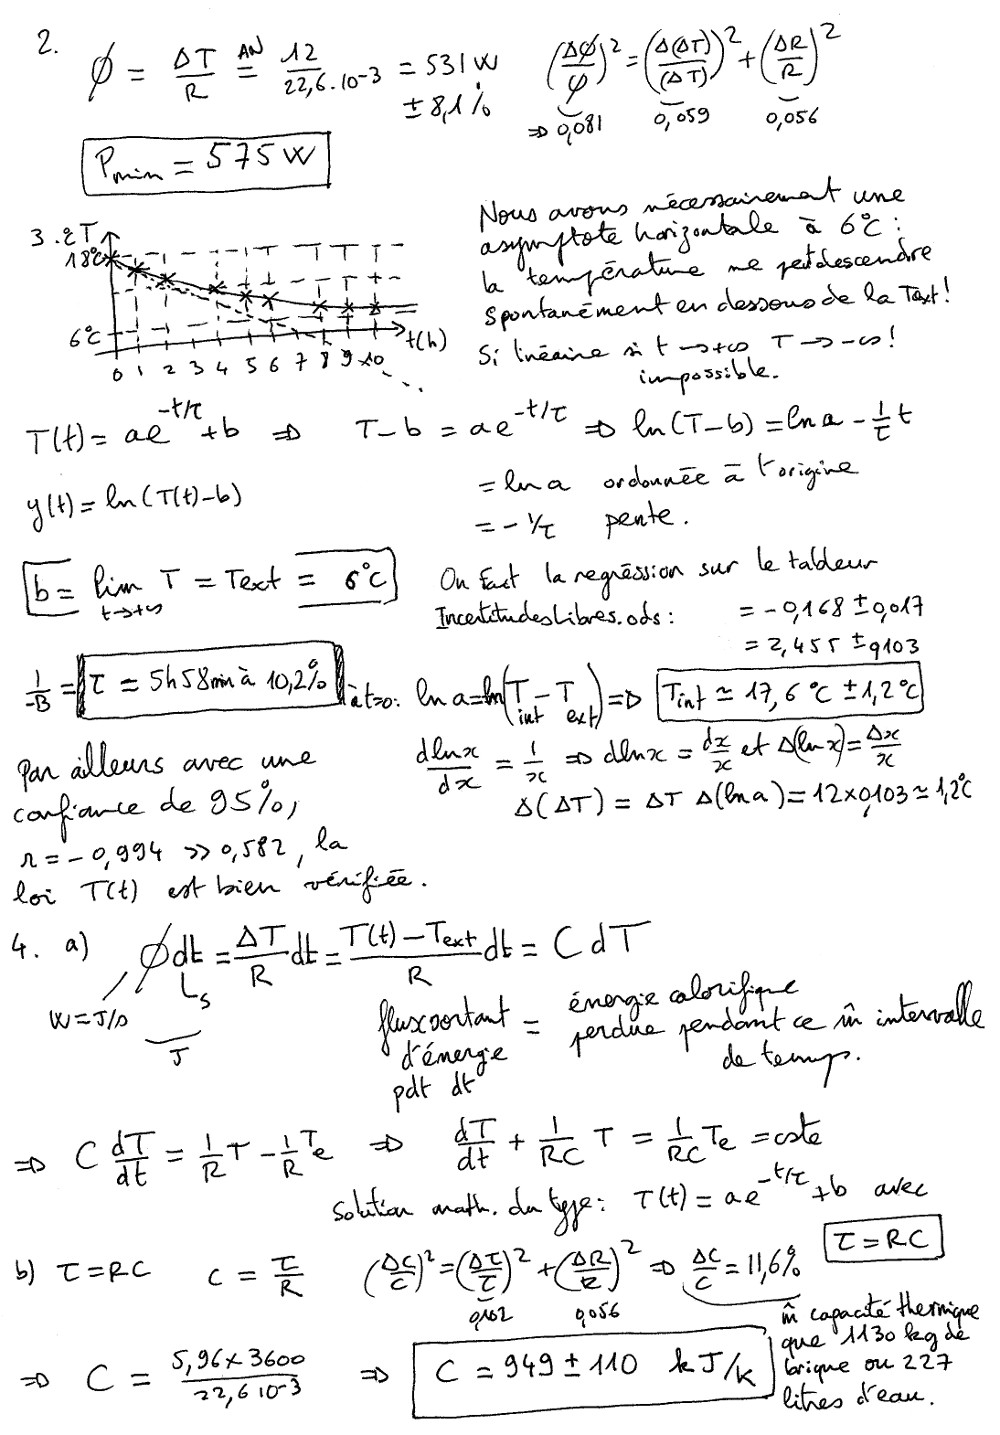 2. ϕ = ΔT/R =(AN) 12/22,6.10-3 = 531 W ± 8,1% (Δϕ/φ)² = (Δ(ΔT)/(ΔT))² + (ΔR/R)²
⇒ 0,081 0,059 0,056
Pmin = 575 W
3. T
18°C
6°C
0 1 2 3 4 5 6 7 8 9 10 t(h)
Nous avons nécessairement une
asymptote horizontale à 6°C :
la température ne peut descendre
spontanément en dessous de la Text !
Si linéaire si t → +∞ T → -∞ !
impossible.
T(t) = ae^-t/τ + b ⇒ T - b = ae^-t/τ ⇒ ln(T-b) = ln a - 1/τ t
y(t) = ln(T(t)-b) = ln a ordonnée à l'origine
= -1/τ pente.
b = lim T = Text = 6°C
t→+∞
On fait la régression sur le tableur
IncertitudesLibres.ods : = -0,168 ± 0,017
= 2,455 ± 0,103
1/-B = τ = 5h58min à 10,2% à t=0: ln a = ln(Tint - Text) ⇒ Tint ≃ 17,6 °C ± 1,2°C
dlnx/dx = 1/x ⇒ dlnx = dx/x et Δ(lnx) = Δx/x
Δ(ΔT) = ΔT Δ(ln a) = 12×0,103 ≃ 1,2°C
Par ailleurs avec une
confiance de 95%,
r = -0,994 >> 0,582, la
loi T(t) est bien vérifiée.
4. a) ϕdt = ΔT/R dt = T(t) - Text/R dt = C dT
W = J/s s
J
flux sortant d'énergie pdt dt = énergie calorifique perdue pendant ce m̂ intervalle de temps.
⇒ C dT/dt = 1/R T - 1/R Te ⇒ dT/dt + 1/RC T = 1/RC Te = cste
Solution math. du type : T(t) = ae^-t/τ + b avec
τ = RC
b) τ = RC C = τ/R (ΔC/C)² = (Δτ/τ)² + (ΔR/R)² ⇒ ΔC/C = 11,6%
0,102 0,056
⇒ C = 5,96×3600/22,6 10-3 ⇒ C = 949 ± 110 kJ/K
m̂ capacité thermique
que 1130 kg de
brique ou 227
litres d'eau.